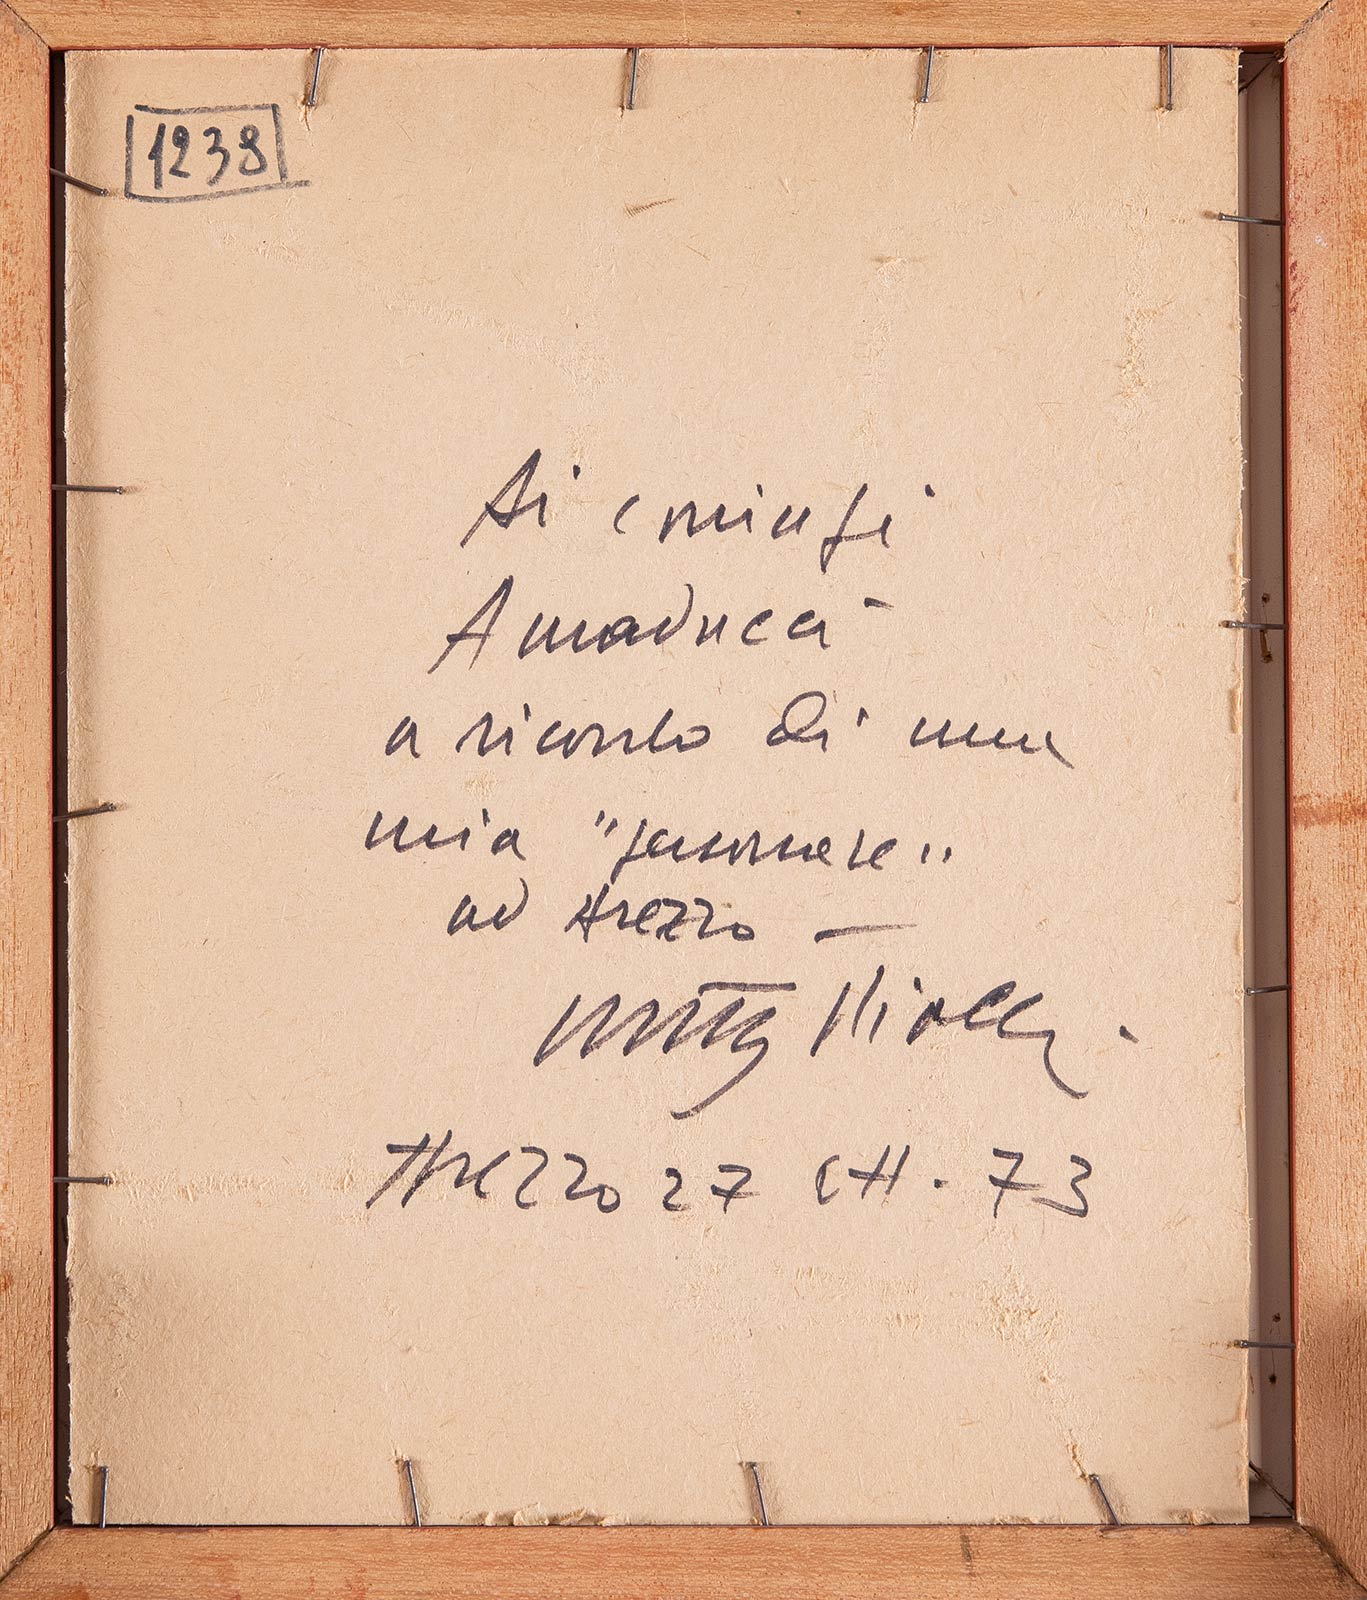 1238
Ai coniugi
Amaducci
a ricordo di una
mia "personale"
ad Arezzo —
Arezzo 27 ott. 73